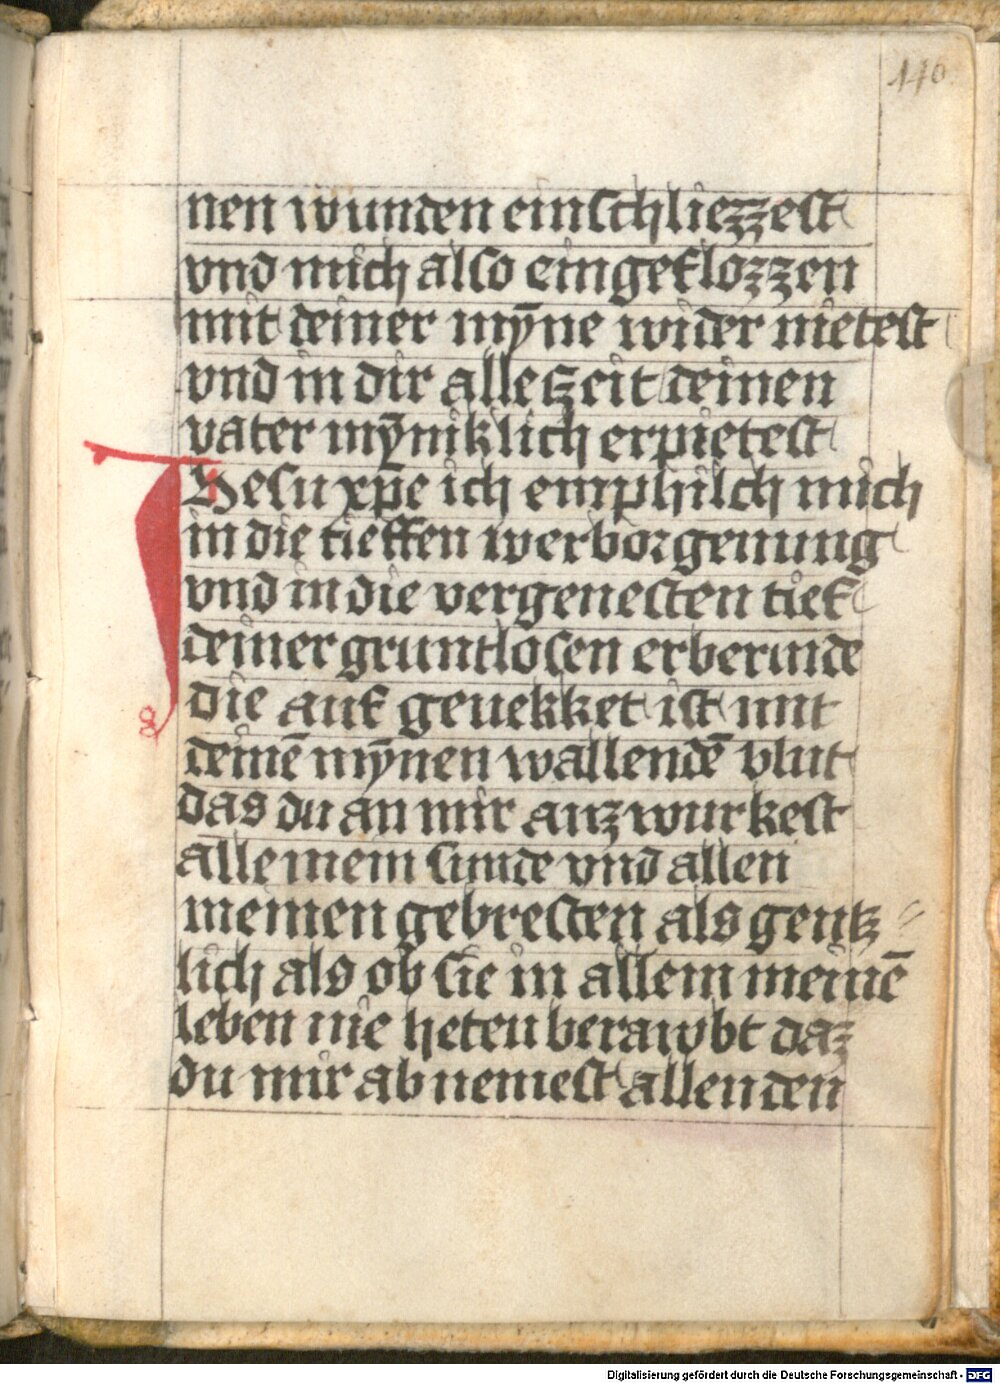 146
nen wunden einschliezzest
vnd mich also eingeflozzen
mit deiner mȳne wider nietest
vnd in dir alleczeit deinen
vater mȳniklich erpietest
Ihesu xp̄e ich emphilch mich
in die tieffen werborgenung
vnd in die vergenesten tief
deiner gruntlosen erbermde
die auf geuekket ist mit
deinē mȳnen wallendē blut
das du an mir auzwurkest
alle mein sunde vnd allen
meinen gebresten als gentz⸗
lich als ob sie in allem meinē
leben nie heten berawbt daz
du mir ab nemest allen den
Digitalisierung gefördert durch die Deutsche Forschungsgemeinschaft - DFG